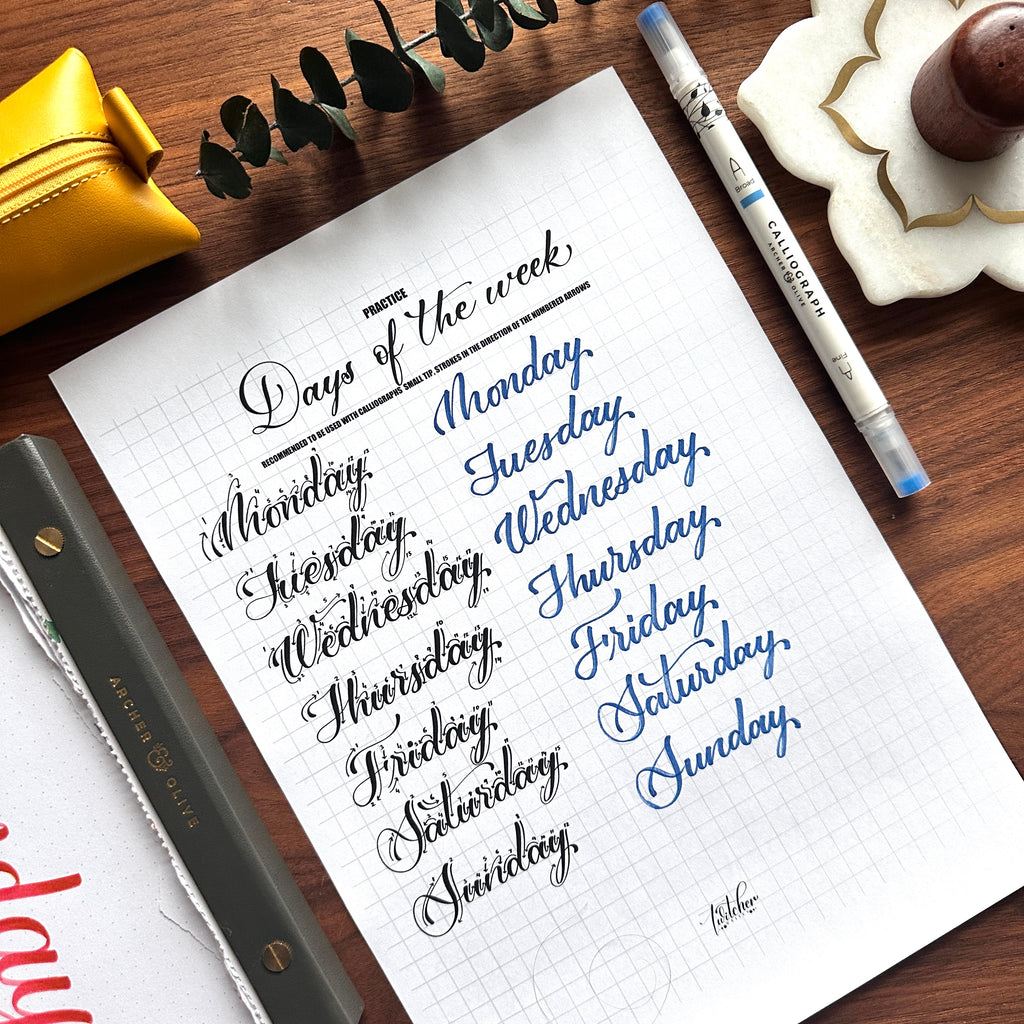 PRACTICE
Days of the week
RECOMMENDED TO BE USED WITH CALLIOGRAPHS SMALL TIP, STROKES IN THE DIRECTION OF THE NUMBERED ARROWS
Monday
Tuesday
Wednesday
Thursday
Friday
Saturday
Sunday
Monday
Tuesday
Wednesday
Thursday
Friday
Saturday
Sunday
A
Broad
CALLIOGRAPH
ARCHER & OLIVE
A
Fine
ARCHER & OLIVE
day